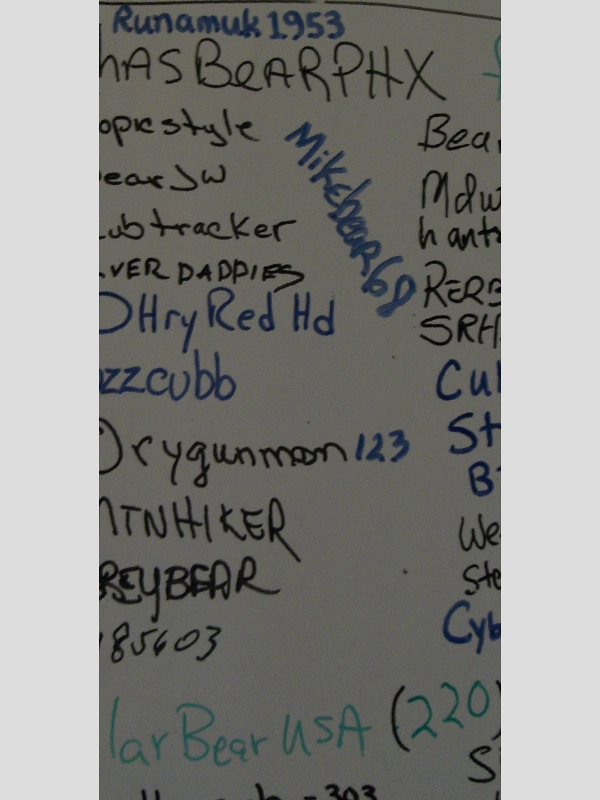 Runamuk1953
hAS BeARPHX
opicstyle
earJW
ubtracker
VER DADDIES
OHryRed Hd
zzcubb
Orygunmon123
MTNHIKER
REYBEAR
85603
lar Bear USA (220)
Mikebear68
Bea
Mdw
hantr
RERB
SRH
Cul
St
B
We
Ste
Cyb
S
303